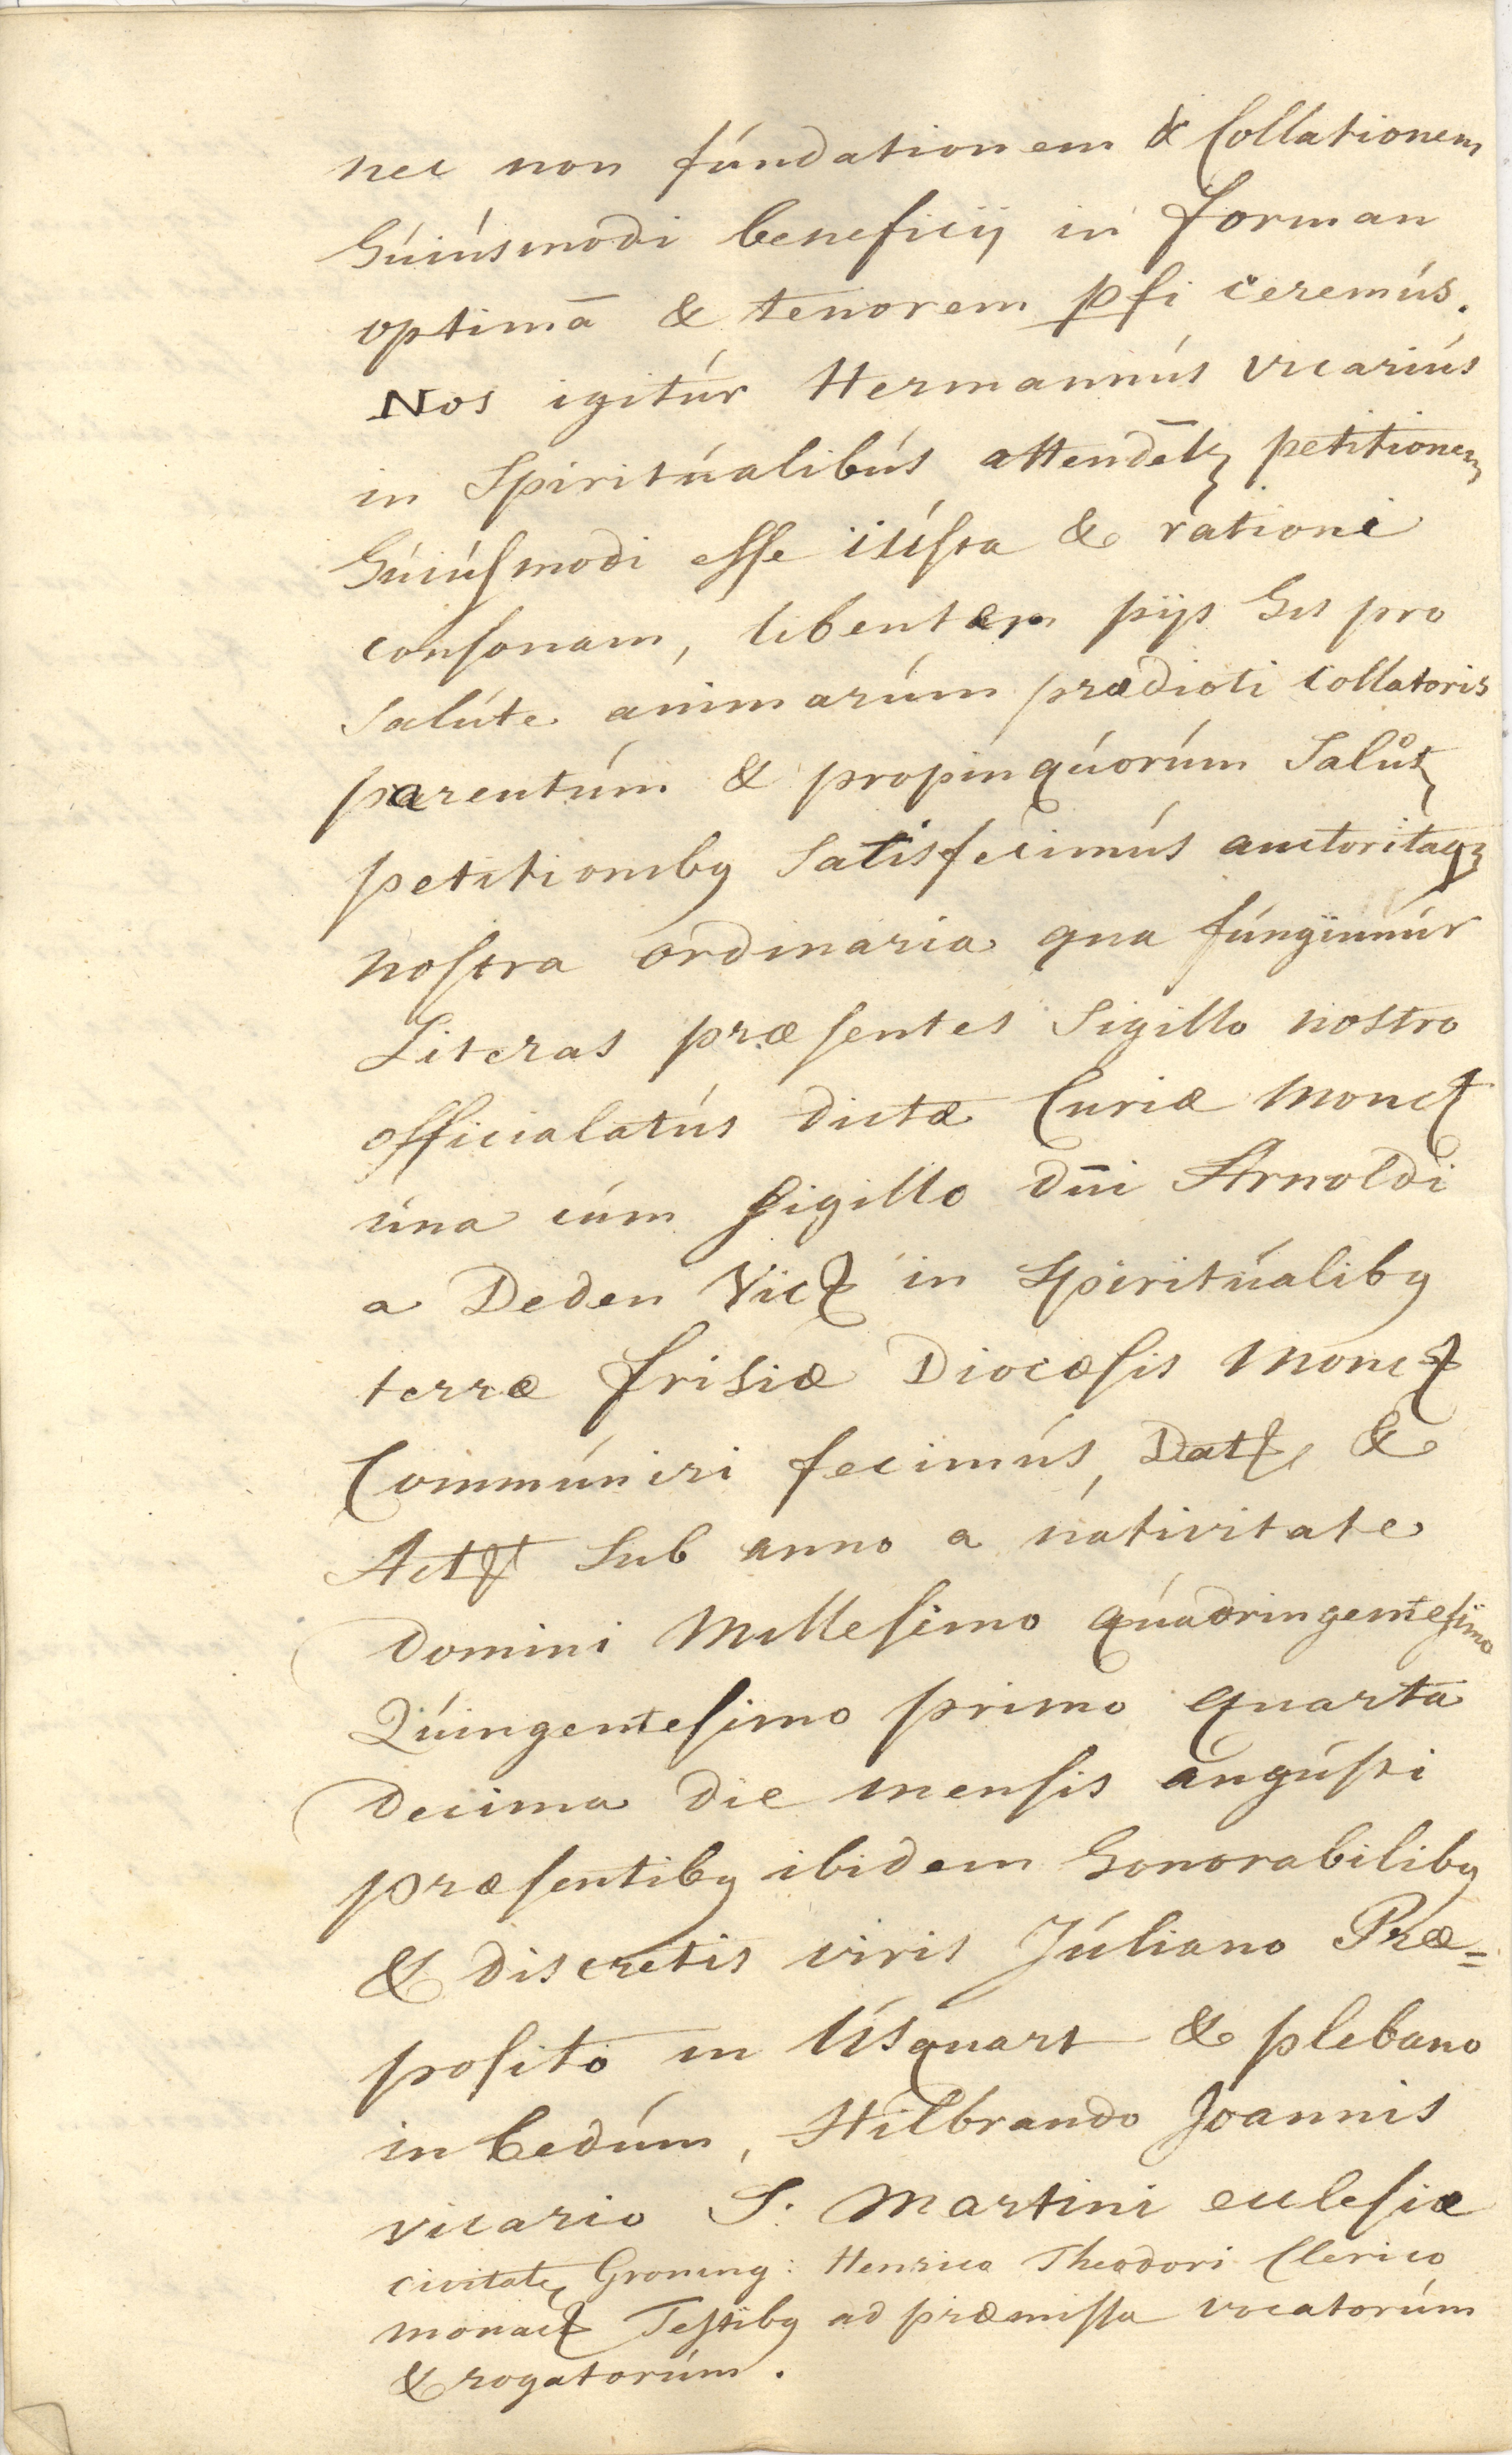 nec non fúndationem & Collationem
húiúsmodi beneficij in forman
optimā & tenorem pfi ceremús.
Nos igitúr Hermannús vicariús
in Spiritúalibús attendētꝫ petitionem
húiúſmodi eſſe iúſta & rationi
conſonam, libentem pijs his pro
Salúte animarúm prædicti Collatoris
parentúm & propinqúorúm Salútꝫ
petitionibꝫ Satisfecimús auctoritaqꝫ
noſtra ordinaria qua fúngimúr
Literas præſentes Sigillo nostro
officialatús dictæ Curiæ Monct
úna cúm ſigillo dn̄i Arnoldi
a Deden Vicꝫ in Spiritúalibꝫ
terræ friſiæ Diocæſis Monct
Commúniri fecimús, Datꝫ, &
Actꝫ Sub anno a nativitate
Domini Milleſimo qúadringenteſimo
Qúingenteſimo primo quarta
decima die menſis aúgúſti
præſentibꝫ ibidem honorabilibꝫ
& discretis viris Júliano Præ=
poſito in Úsquart & plebano
in bedúm, Hilbrando Joannis
vicario S. Martini eccleſiæ
civitatꝫ Groning: Henrico Theodori Clerico
monact Teſtibꝫ ad præmiſſa vocatorúm
& rogatorúm.